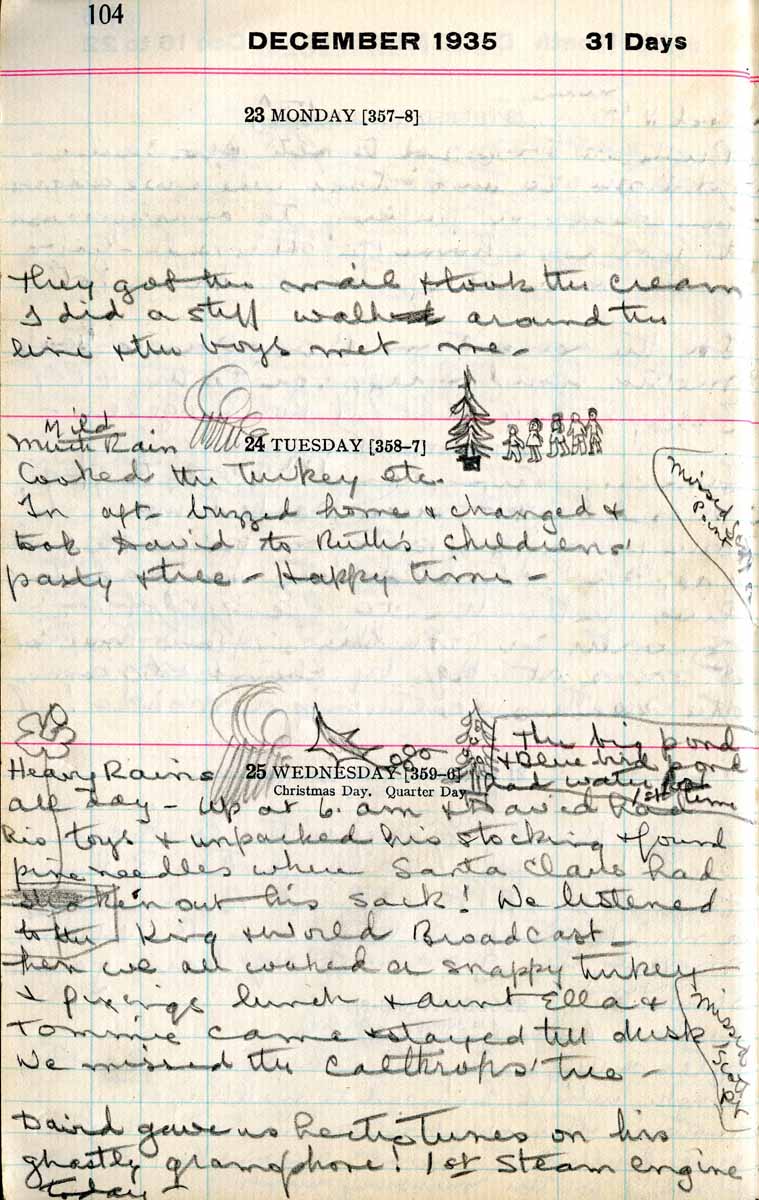 104
DECEMBER 1935 31 Days
23 MONDAY [357–8]
They got the mail & took the cream
I did a stiff walk around the
line & the boys met me –
Mild
Much Rain
24 TUESDAY [358–7]
Cooked the Turkey etc.
In aft– buzzed home & changed &
took David to Ruth's childrens'
party & tree – Happy time –
Missed Scott
Point
25 WEDNESDAY [359–6]
Christmas Day. Quarter Day
The big pond
& Blue bird pond
had water for
1st time
Heavy Rains
all day – Up at 6. am & David had
his toys & unpacked his stocking & found
pine needles where Santa Claus had
shaken out his sack! We listened
to the King & World Broadcast –
then we all cooked a snappy turkey
& fixings lunch & aunt Ella &
Tommie came & stayed till dusk
We missed the Calthrops' tree –
Missed
Scott
Pt
David gave us hectic tunes on his
ghastly gramophone! 1st Steam engine
today –